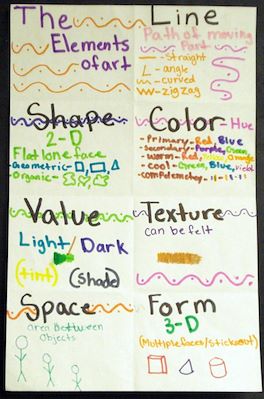 The
Elements
of art
Line
Path of moving
Point
- straight
- angle
- curved
- zigzag
Shape
2-D
Flat one face
Geometric -
Organic -
Color - Hue
- Primary - Red, Blue,
- Secondary - Purple, Green,
- Warm - Red, Yellow, Orange
- Cool - Green, Blue, Violet
- Complementary -
Value
Light / Dark
(tint) (shade)
Texture
can be felt
Space
area Between
Objects
Form
3-D
(Multiple faces/Sticks out)